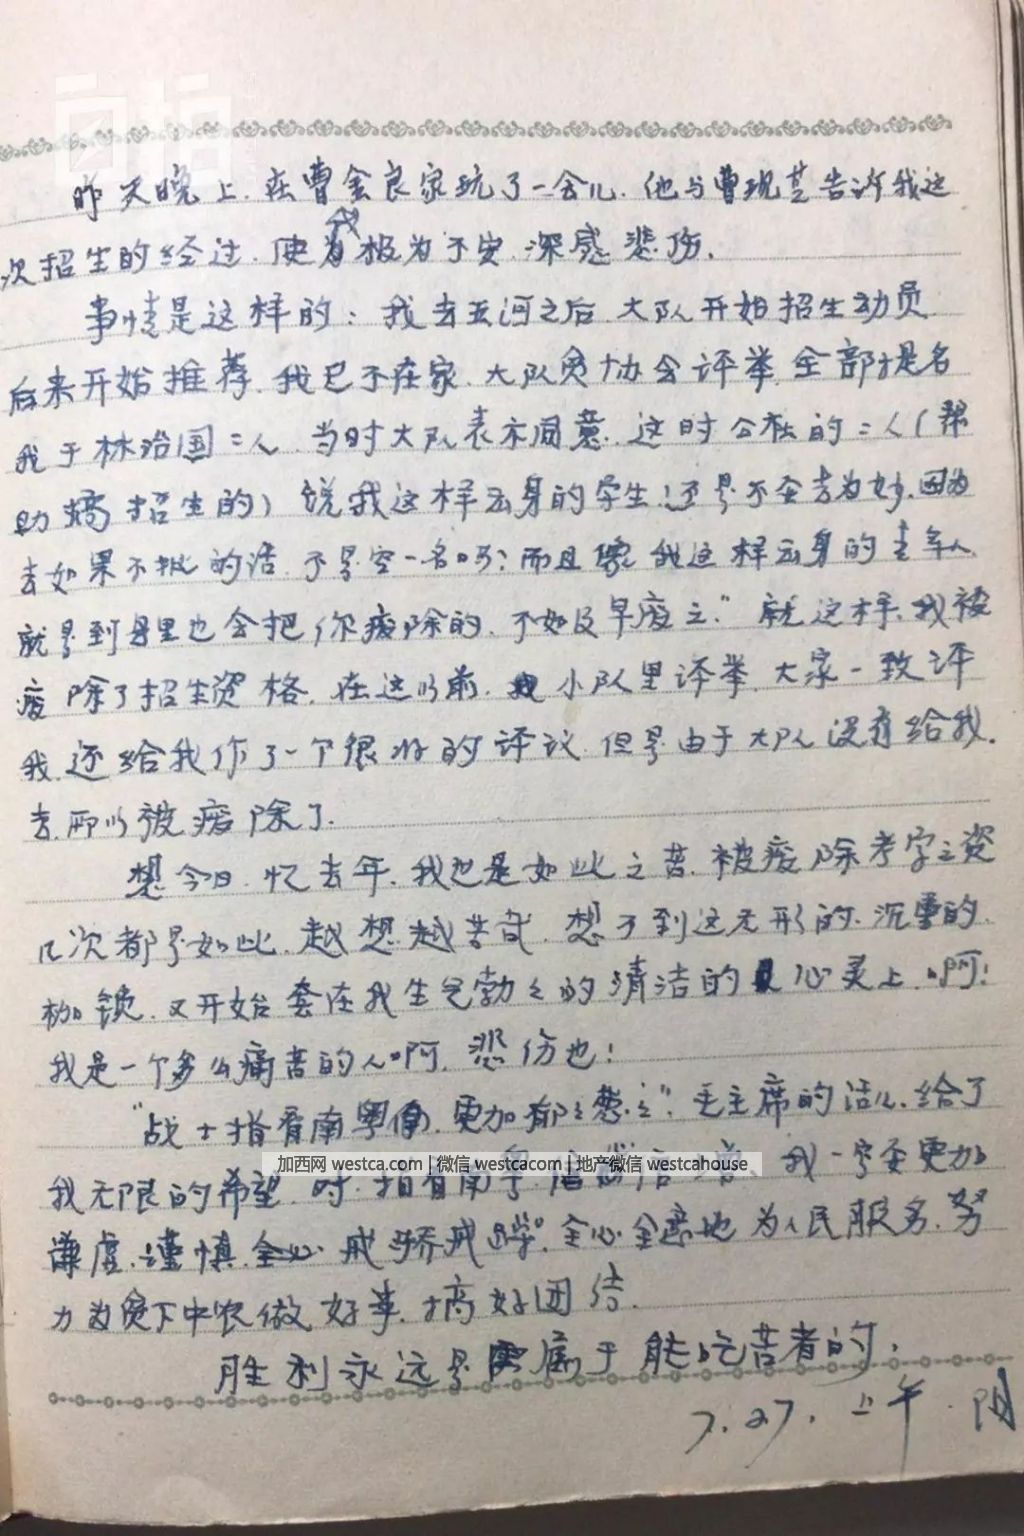 昨天晚上.在曹金良家玩了一会儿.他与曹现芝告诉我这
次招生的经过.使我极为不安.深感悲伤.
事情是这样的：我去五河之后.大队开始招生动员
后来开始推荐.我已不在家.大队贫协会评举.全部提名
我于林治国二人.当时大队表示同意.这时公社的二人(帮
助搞招生的)说我这样出身的学生!还是不去为妙.因为
去如果不批的话.不是空一名吗?而且像我这样出身的青年人
就是到县里也会把你废除的.不如及早废之."就这样.我被
废除了招生资格.在这以前.小队里评举.大家一致评
我.还给我作了一个很好的评议.但是由于大队没有给我.
去.所以被废除了.
想今日.忆去年.我也是如此之苦.被废除考学之资
几次都是如此.越想越苦.想不到这无形的.沉重的
枷锁.又开始套在我生气勃々的清洁的心灵上.啊!
我是一个多么痛苦的人啊.悲伤也!
"战士指看南粤.更加郁々葱々".毛主席的话儿.给了
我无限的希望.时.指看南粤.我一定要更加
谦虚.谨慎.戒骄戒躁.全心全意地为人民服务.努
力为贫下中农做好事.搞好团结.
胜利永远是属于能吃苦者的.
7.27.上午.阴
加西网 westca.com | 微信 westcacom | 地产微信 westcahouse